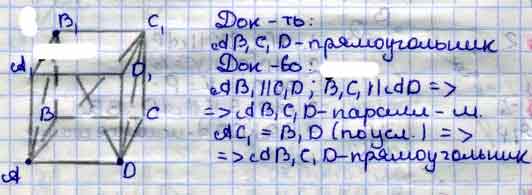 B₁ C₁
A₁ D₁
B C
A D
Док-ть:
AB₁C₁D-прямоугольник
Док-во:
AB₁||C₁D; B₁C₁||AD =>
=> AB₁C₁D-паралл-м.
AC₁=B₁D (по усл.) =>
=> AB₁C₁D-прямоугольник